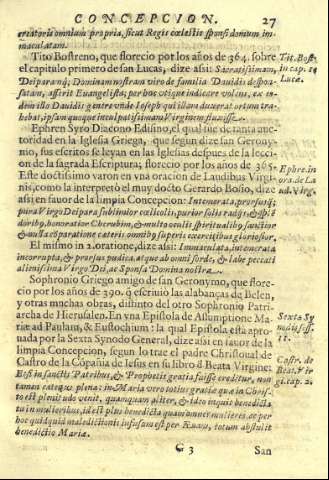 CONCEPCION. 27
creatoris omnium propria, sicut Regis cœlestis sponsi donitum im-
maculatam.
Tito Bostreno, que florecio por los años de 364. sobre
el capitulo primero de san Lucas, dize assi: Sacratissimam,
Deiparanq; Dominam nostram viro de familia Dauidis despon-
satam, asserit Euangelista; per hoc vtique indicare volens, ex eo-
dem isto Dauidis genere vnde Ioseph qui illam duxerat ortum tra-
hebat, ipsam quoque inculpatissimam Virginem fluxisse.
Tit. Bost.
in cap.
Lucæ.
Ephren Syro Diacono Edisino, el qual fue de tanta auc-
toridad en la Iglesia Griega, que segun dize san Gerony-
mo, sus escritos se leyan en las Iglesias despues de la lecci-
on de la sagrada Escriptura, florecio por los años de 365.
Este doctissimo varon en vna oracion de Laudibus Virgi-
nis, como la interpretò el muy docto Gerardo Bosio, dize
assi en fauor de la limpia Concepcion: Intemerata, prorsusq;
pura Virgo Deipara sublimior cœlicolis, purior solis radijs, & splen-
doribus, honoratior Cherubin, & multis oculis spiritualibus, sanctior
& nulla comparatione cæteris omnibus superis exercitibus gloriosior.
Ephre. in
ora. de La
ud. Virg.
El mismo in 2. oratione, dize assi: Immaculata, intemerata
incorrupta, & prorsus pudica, atque ab omni sorde, & labe peccati
alienissima Virgo Dei, ac Sponsa Domina nostra.
Sophronio Griego amigo de san Geronymo, que flore-
cio por los años de 390. q̃ escriuio las alabanças de Belen,
y otras muchas obras, distinto del otro Sophronio Patri-
archa de Hierusalen. En vna Epistola de Assumptione Ma-
riæ ad Paulam, & Eustochium: la qual Epistola està apro-
uada por la Sexta Synodo General, dize assi en fauor de la
limpia Concepcion, segun lo trae el padre Christoual de
Castro de la Cōpañia de Iesus en su libro d Beata Virgine.
Etsi in sanctis Patribus, & Prophetis gratia fuisse creditur, non
tamen eatenus plena: in Maria vero totius gratiæ quæ in Chris-
to est plenitudo venit, quamquam aliter, & ideo inquit benedicta
tu in mulieribus, id est plus benedicta quam omnes mulieres, ac per
hoc quidquid maledictionis infusum est per Euam, totum abstulit
benedictio Mariæ.
Sexta Sy
nodi
Castr. de
Beat. Vir
gi. cap. 2.
G 3
San